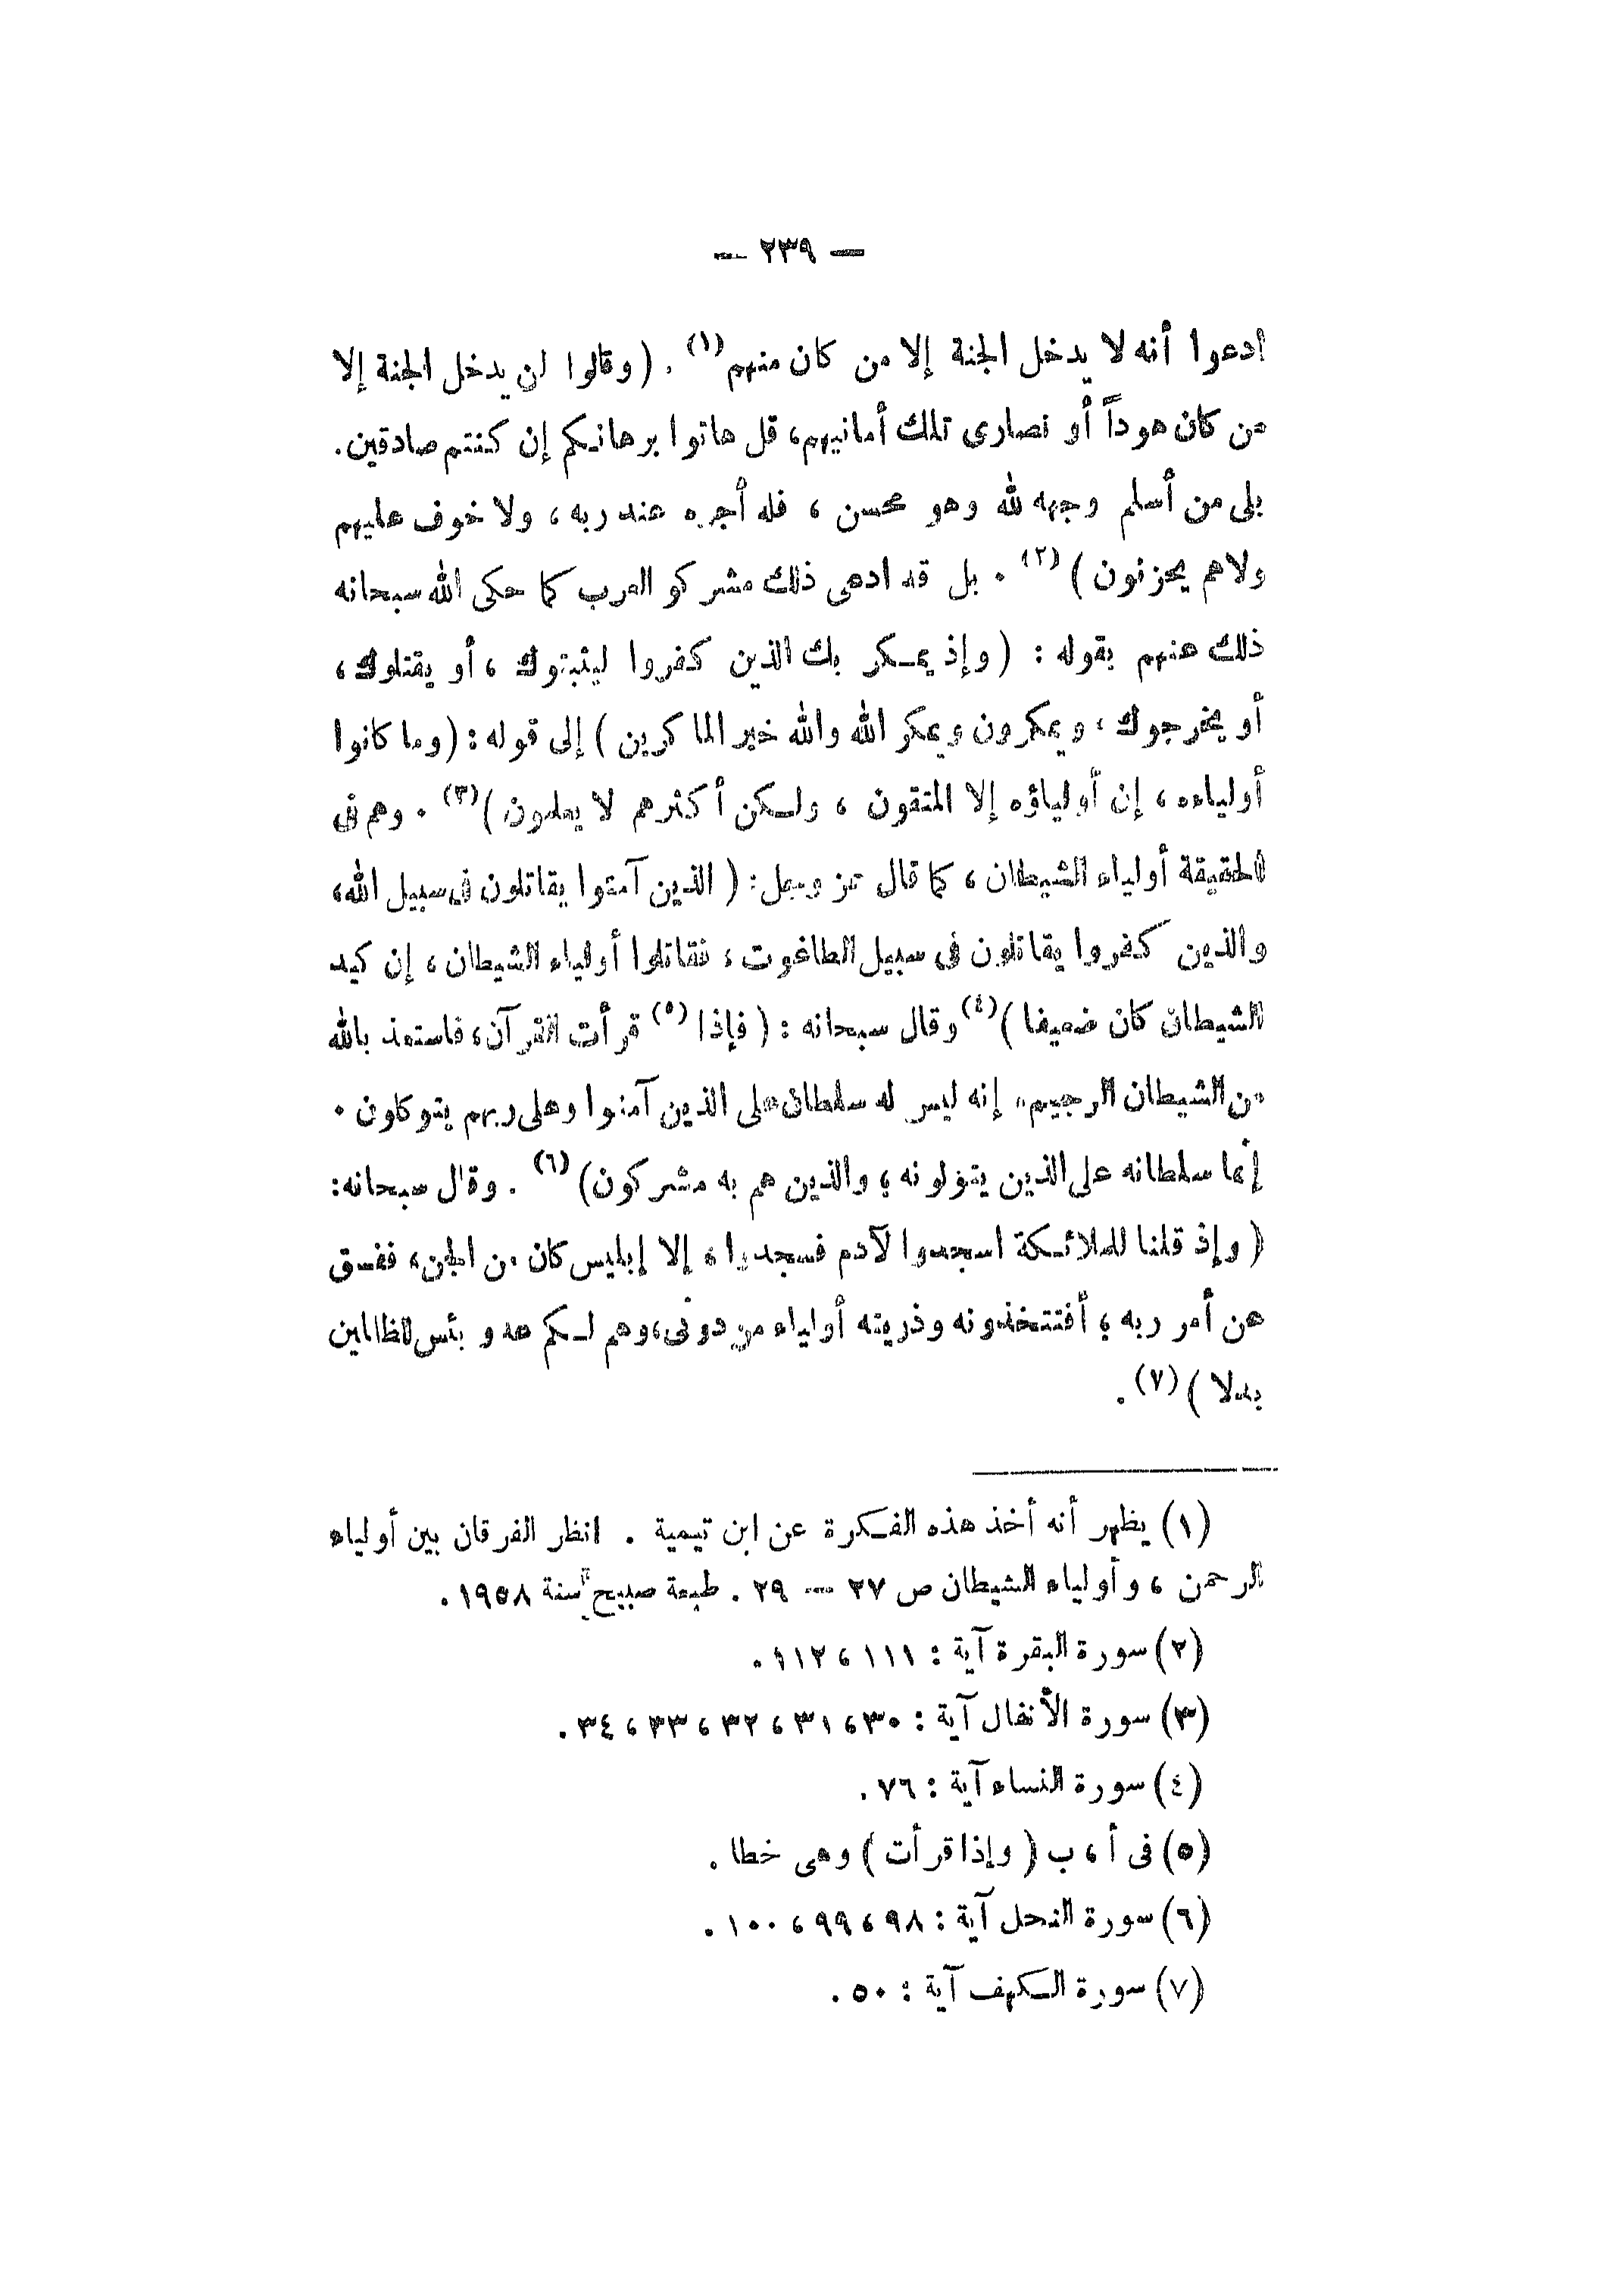 — ٢٣٩ —
ادعوا أنه لا يدخل الجنة إلا من كان منهم(١) . (وقالوا لن يدخل الجنة إلا
من كان هوداً أو نصارى تلك أمانيهم، قل هاتوا برهانكم إن كنتم صادقين.
بلى من أسلم وجهه لله وهو محسن ، فله أجره عند ربه ، ولا خوف عليهم
ولاهم يحزنون )(٢) . بل قد ادعى ذلك مشركو العرب كما حكى الله سبحانه
ذلك عنهم بقوله : (وإذ يمكر بك الذين كفروا ليثبتوك ، أو يقتلوك ،
أو يخرجوك ، ويمكرون ويمكر الله والله خير الماكرين ) إلى قوله : (وما كانوا
أولياءه ، إن أولياؤه إلا المتقون ، ولكن أكثرهم لا يعلمون )(٣) . وهم فى
الحقيقة أولياء الشيطان ، كما قال عز وجل: ( الذين آمنوا يقاتلون فى سبيل الله،
والذين كفروا يقاتلون فى سبيل الطاغوت ، فقاتلوا أولياء الشيطان ، إن كيد
الشيطان كان ضعيفا )(٤) وقال سبحانه : ( فإذا (٥) قرأت القرآن، فاستعذ بالله
من الشيطان الرجيم، إنه ليس له سلطان على الذين آمنوا وعلى ربهم يتوكلون .
إنما سلطانه على الذين يتولونه ، والذين هم به مشركون) (٦) . وقال سبحانه:
( وإذ قلنا للملائكة اسجدوا لآدم فسجدوا ، إلا إبليس كان من الجن، ففسق
عن أمر ربه ، أفتتخذونه وذريته أولياء من دونى، وهم لكم عدو بئس للظالمين
بدلا ) (٧) .
(١) يظهر أنه أخذ هذه الفكرة عن ابن تيمية . انظر الفرقان بين أولياء
الرحمن ، وأولياء الشيطان ص ٢٧ — ٢٩ . طبعة صبيح سنة ١٩٥٨ .
(٢) سورة البقرة آية : ١١١ ، ١١٢ .
(٣) سورة الأنفال آية : ٣٠ ، ٣١ ، ٣٢ ، ٣٣ ، ٣٤ .
(٤) سورة النساء آية : ٧٦ .
(٥) فى أ ، ب ( وإذا قرأت ) وهى خطا .
(٦) سورة النحل آية : ٩٨ ، ٩٩ ، ١٠٠ .
(٧) سورة الكهف آية : ٥٠ .